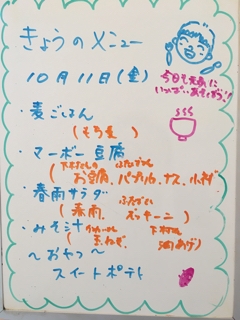 きょうのメニュー
10月11日(金)
今日も元気に
いっぱいあそぼう!
・麦ごはん
・マーボー豆腐
(お豆腐、パプリカ、ナス、小ネギ)
・春雨サラダ
(春雨、ズッキーニ)
・みそ汁
玉ねぎ 油あげ)
〜おやつ〜
スイートポテト